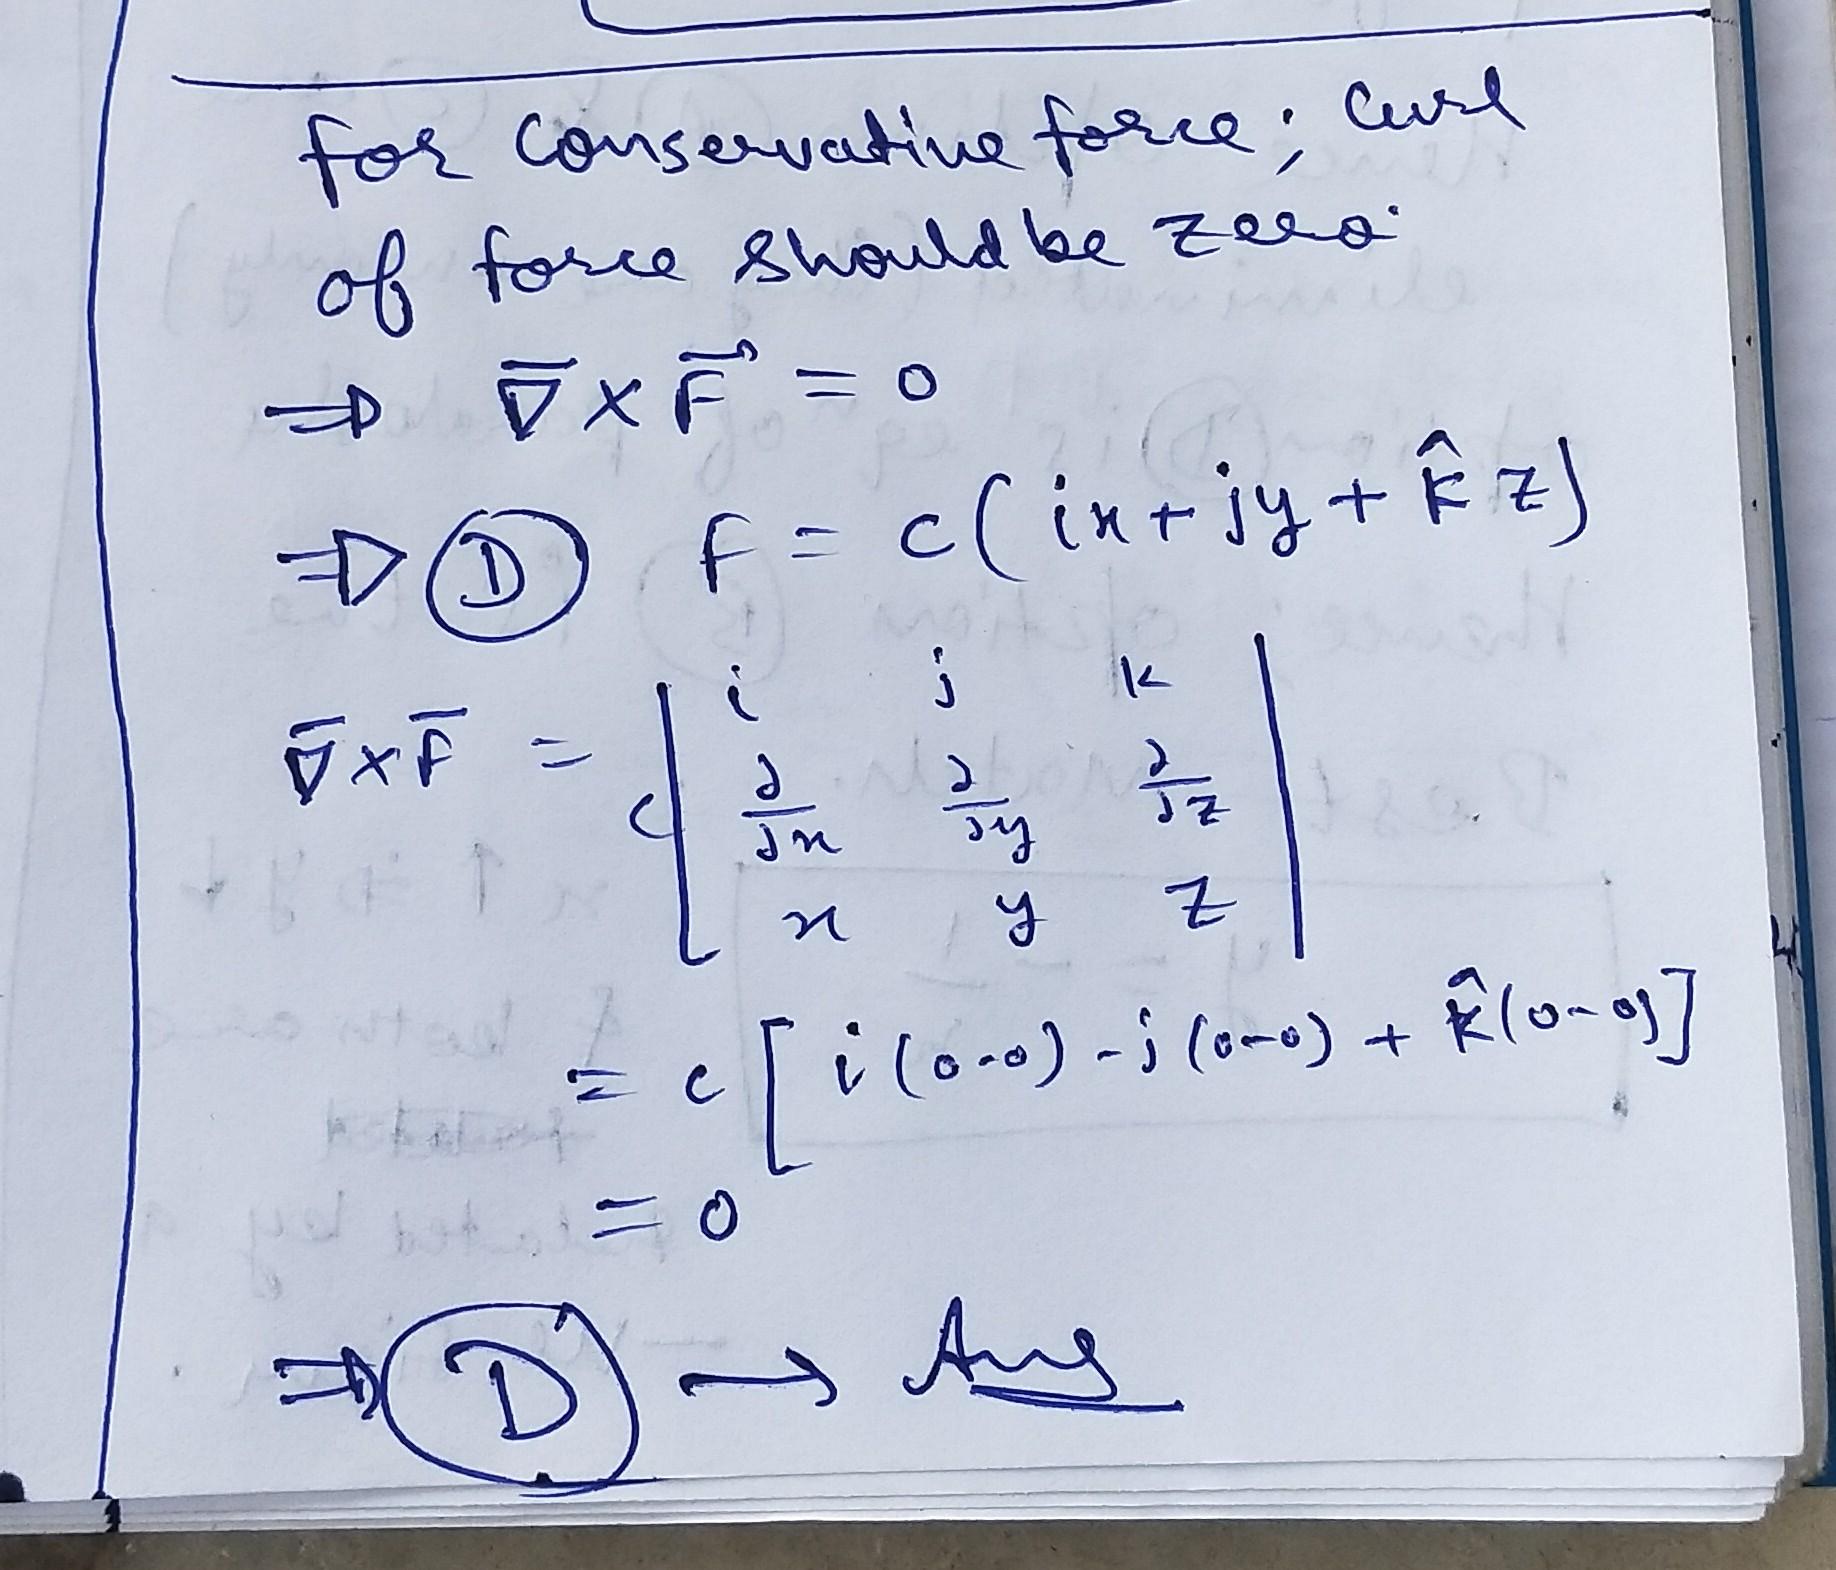 for conservative force; curl
of force should be zero.
⇒ ∇̄ × F⃗ = 0
⇒ (D) F = c( ix + jy + k̂ z)
∇̄×F̄ = c | i j k
∂/∂x ∂/∂y ∂/∂z
x y z |
= c [ i (0-0) - j (0-0) + k̂ (0-0) ]
= 0
⇒ (D) → Ans